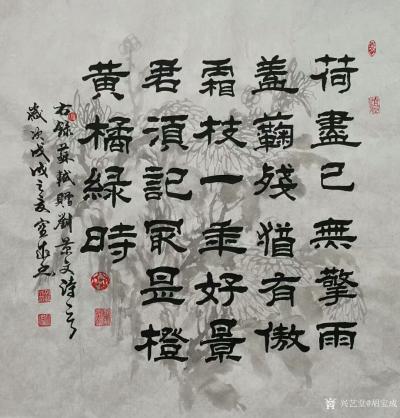 荷盡已無擎雨
盖蘜殘猶有傲
霜枝一年好景
君須記冣是橙
黃橘綠時
右錄蘇軾贈劉景文詩一首
歲次戊戌之夏寶成書
兴艺堂@胡宝成